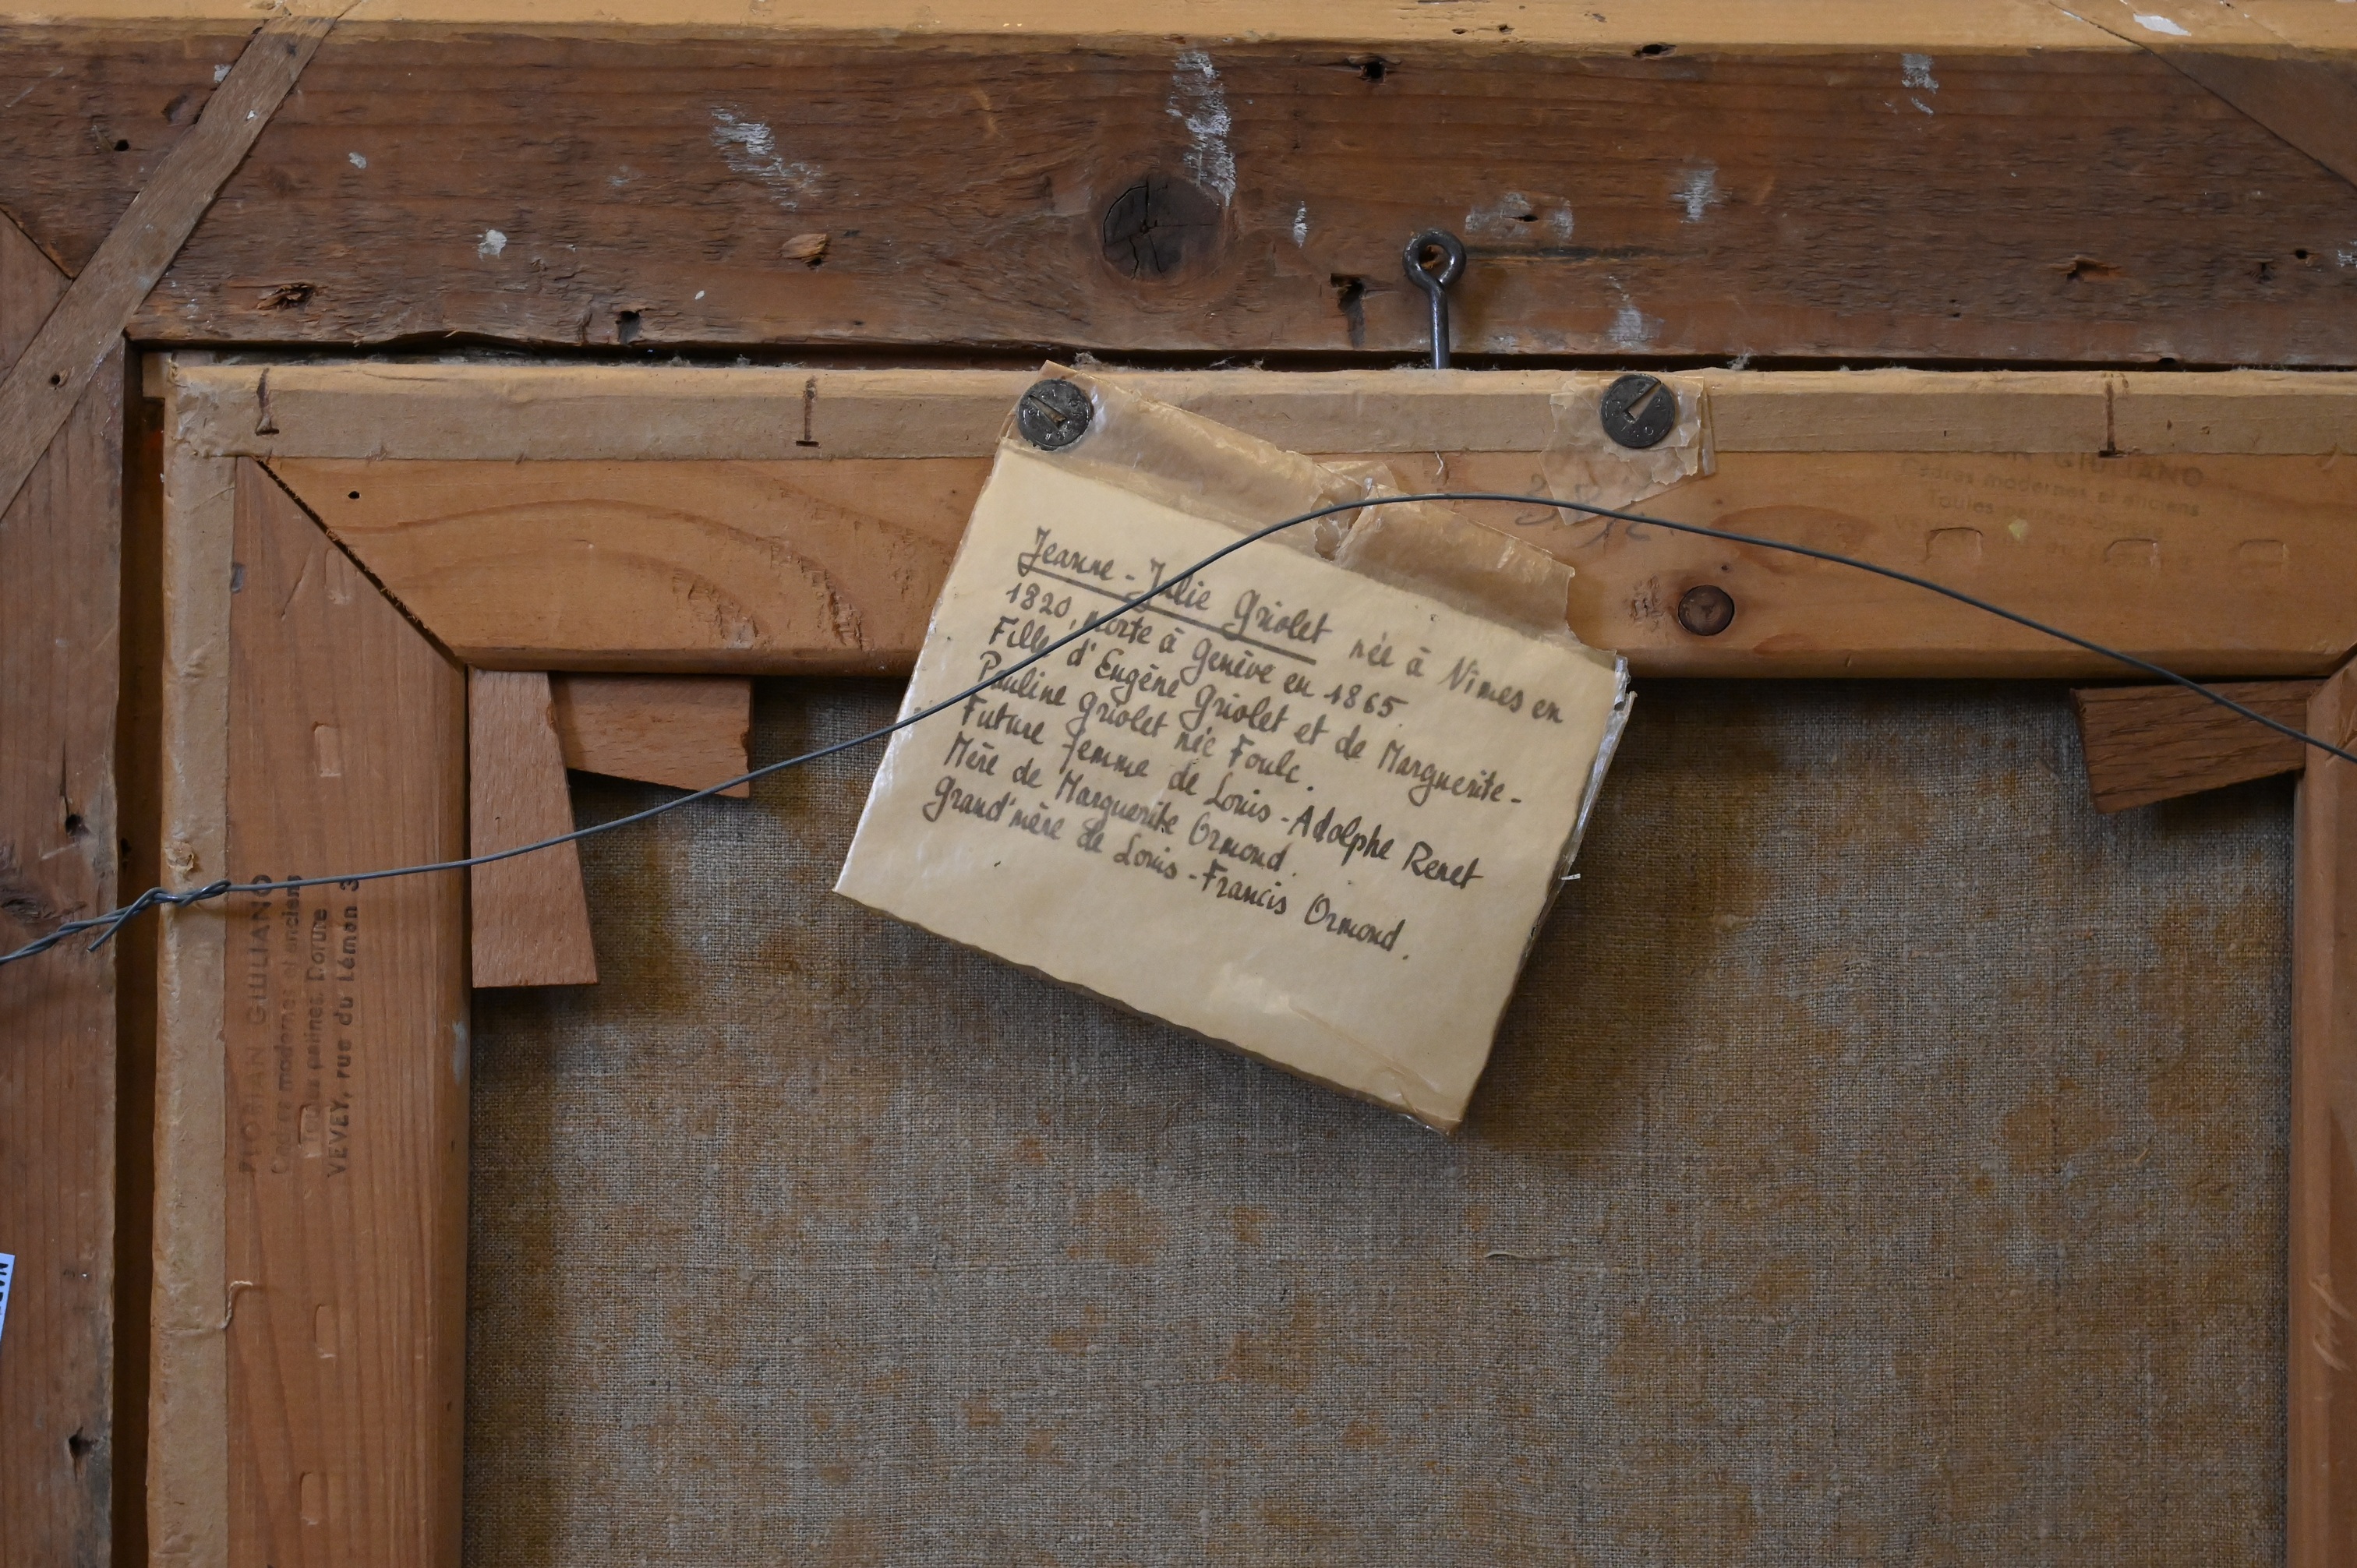 Jeanne-Julie Griolet née à Nîmes en
1820, morte à Genève en 1865.
Fille d'Eugène Griolet et de Marguerite-
Pauline Griolet née Foulc.
Future femme de Louis-Adolphe Renet
Mère de Marguerite Ormond.
Grand'mère de Louis-Francis Ormond.
GIULIANO
Cadres modernes et anciens
Toutes
FLORIAN GIULIANO
Cadres modernes et anciens
Toutes patines. Dorure
VEVEY, rue du Léman 3